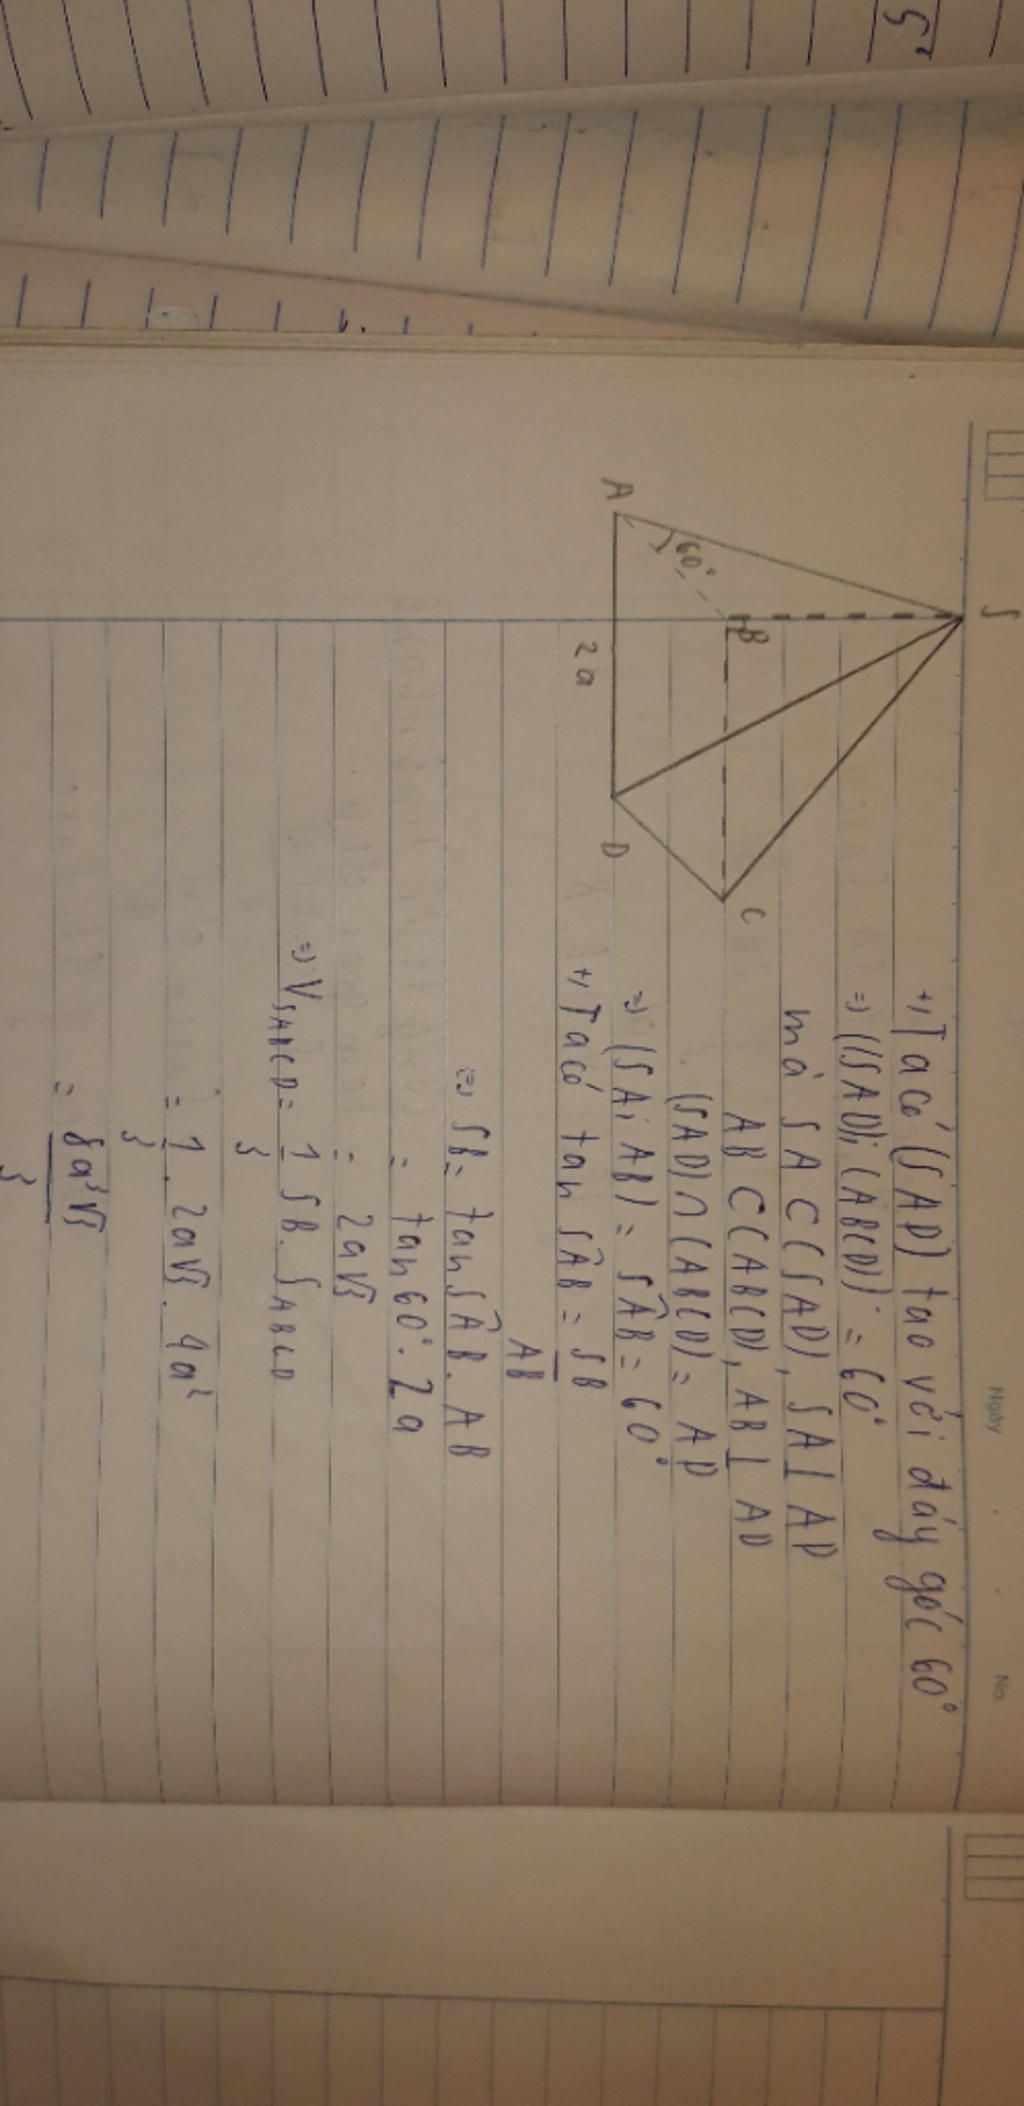 Ngày
No
S
A
60°
B
2a
D
C
+, Ta có (SAD) tạo với đáy góc 60°
=) ((SAD); (ABCD)) = 60°
mà SA ⊂ (SAD), SA ⊥ AD
AB ⊂ (ABCD), AB ⊥ AD
(SAD) ∩ (ABCD) = AD
=) (SA; AB) = SÂB = 60°
+, Ta có tan SÂB = SB/AB
(=) SB = tan SÂB . AB
= tan 60° . 2a
= 2a√3
=) V_SABCD = 1/3 SB . S_ABCD
= 1/3 . 2a√3 . 4a²
= 8a³√3/3